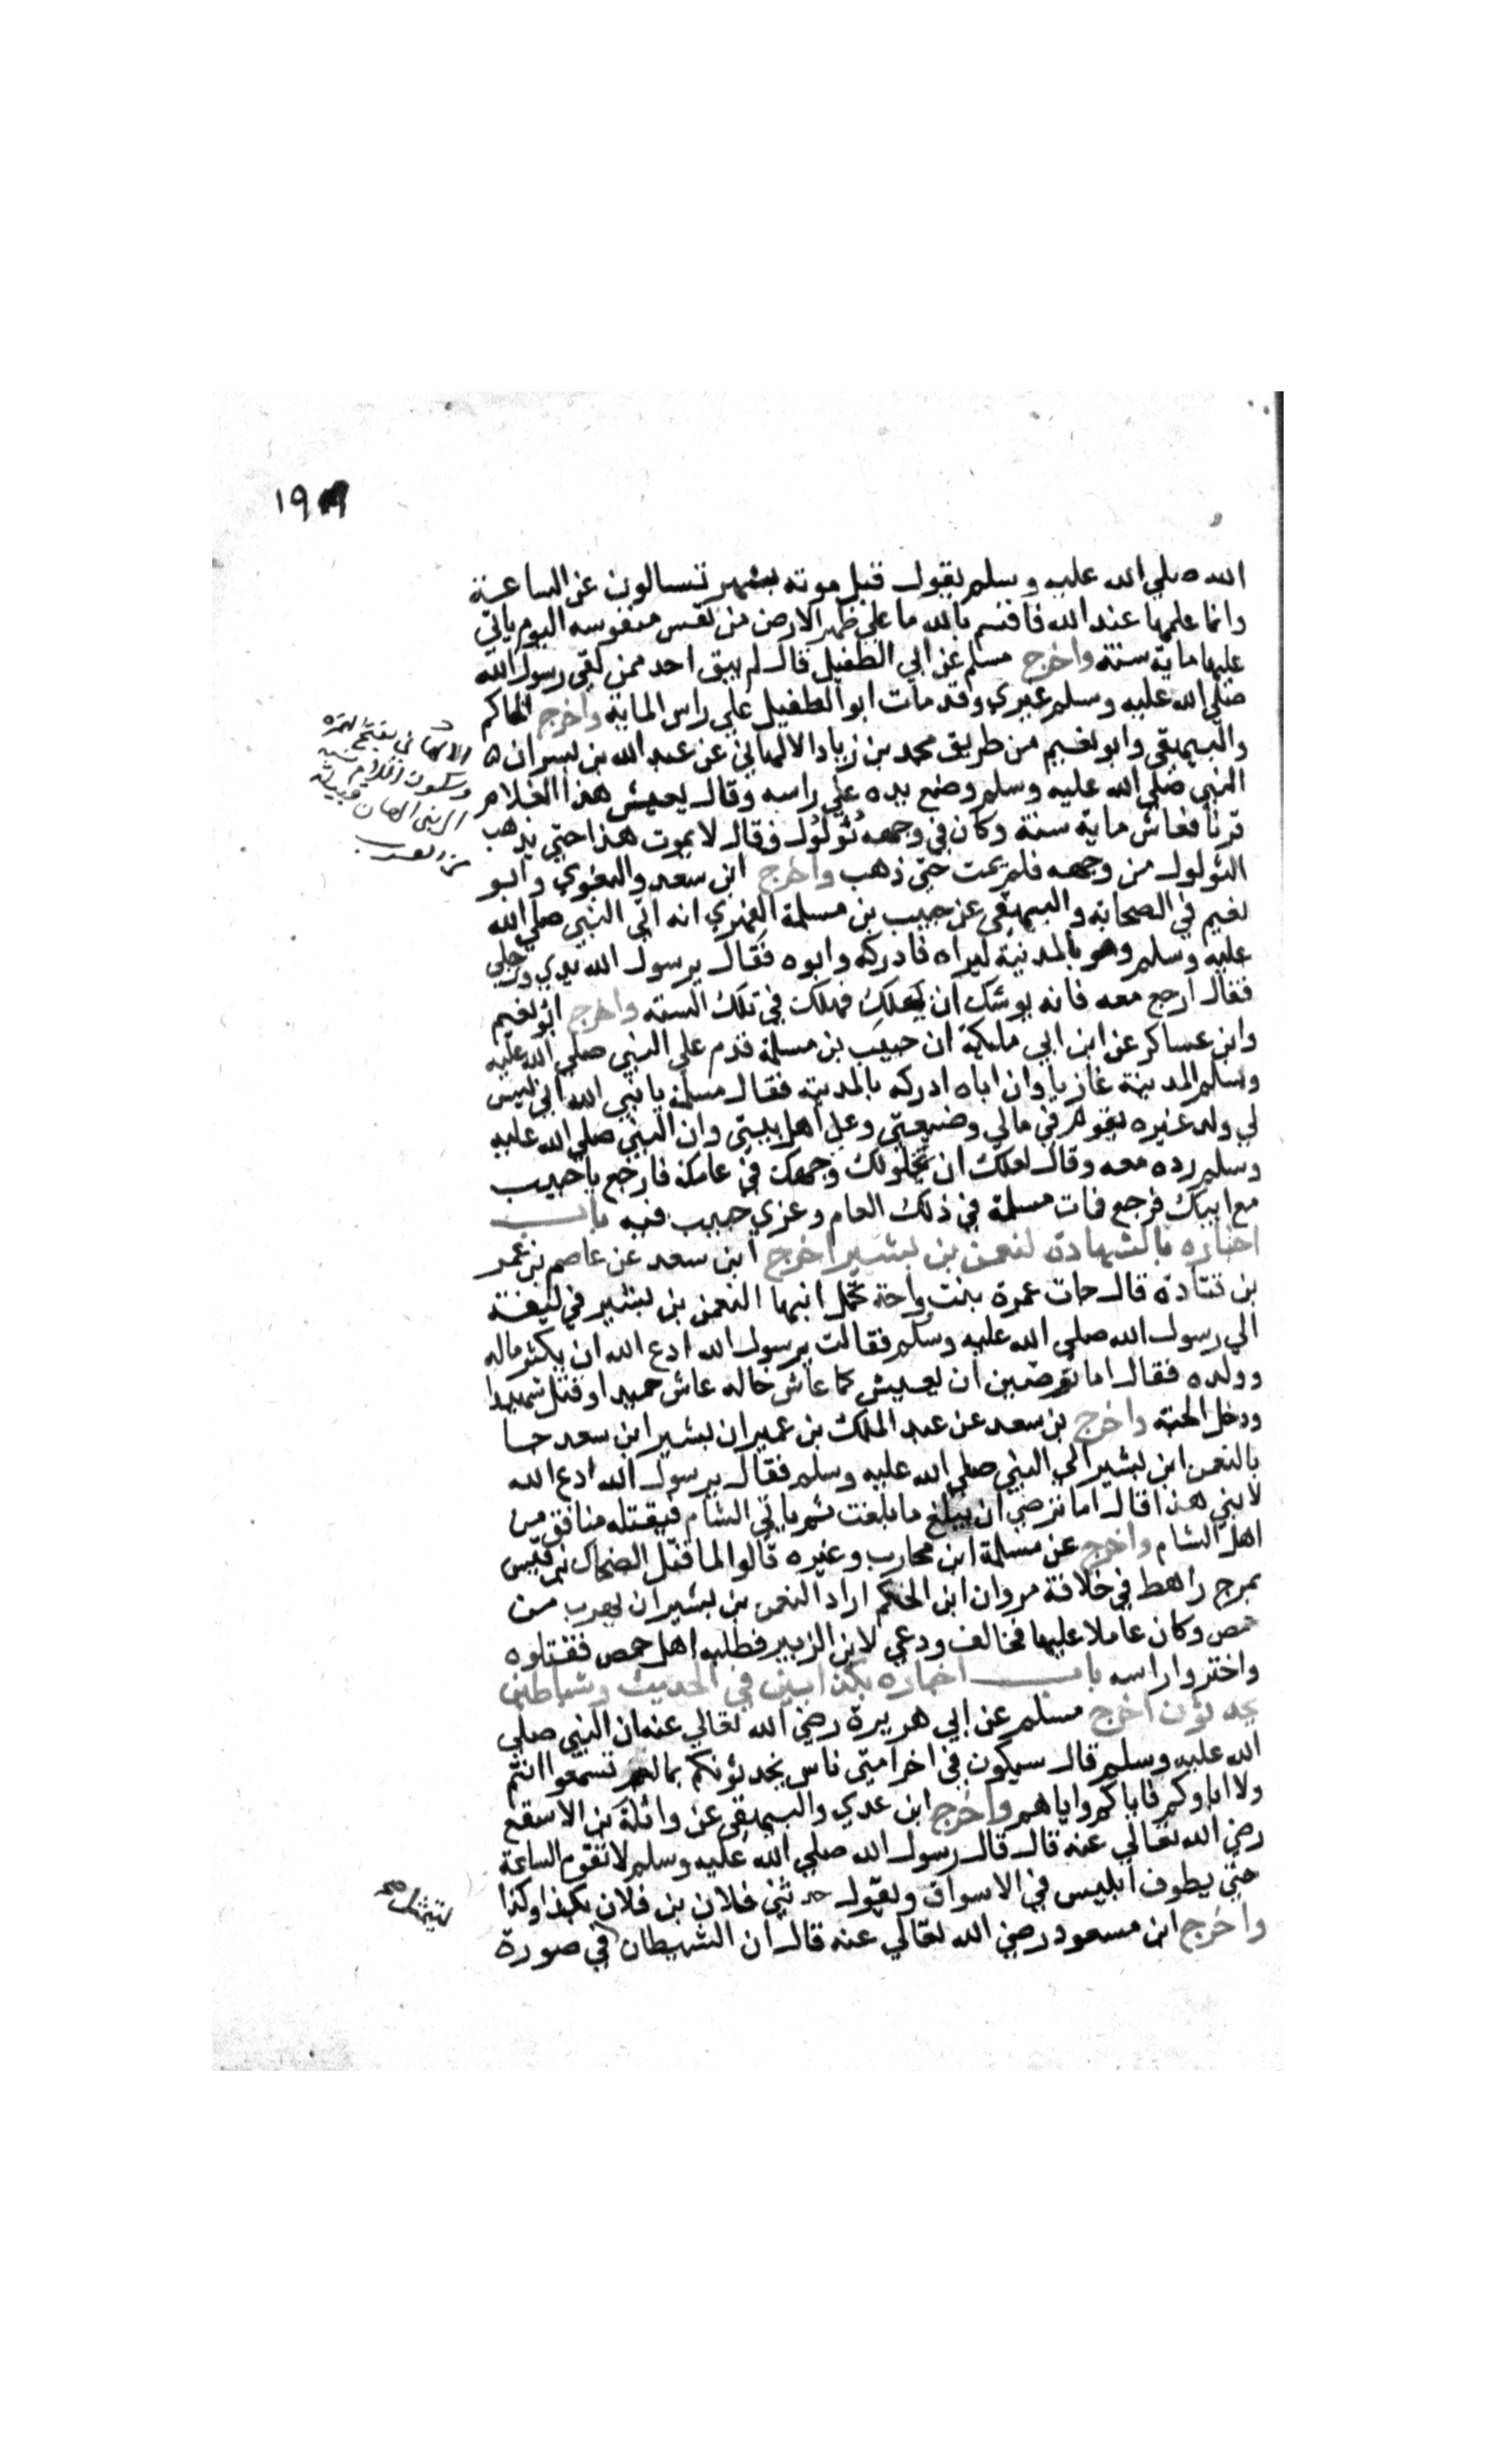 ١٩٩
الله صلي الله عليه وسلم يقول قبل موته بشهر تسالون عن الساعة
وانما علمها عند الله فاقسم بالله ما علي ظهر الارض من نفس منفوسه اليوم ياتي
عليها ماية سنة واخرج مسلم عن ابي الطفيل قال لم يبق احد ممن لقي رسول الله
صلي الله عليه وسلم غيري وقد مات ابو الطفيل علي راس الماية واخرج الحاكم
والبيهقي وابو نعيم من طريق محمد بن زياد الالهاني عن عبد الله بن بسر ان
النبي صلي الله عليه وسلم وضع يده علي راسه وقال يعيش هذا الغلام
قرنا فعاش ماية سنة وكان في وجهه ثؤلول فقال لا يموت هذا حتي يذهب
الثولول من وجهه فلم يمت حتي ذهب واخرج ابن سعد والبغوي وابو
نعيم في الصحابة والبيهقي عن حبيب بن مسلمة الفهري انه اتي النبي صلي الله
عليه وسلم وهو بالمدينة ليراه فادركه وابوه فقال يرسول الله يدي ورجلي
فقال ارجع معه فانه يوشك ان يهلك فهلك في تلك السنه واخرج ابو نعيم
وابن عساكر عن ابن ابي مليكة ان حبيب بن مسلمة قدم علي النبي صلي الله عليه
وسلم المدينة غازيا وان اباه ادركه بالمدينة فقال مسلمة يا نبي الله اني ليس
لي ولد غيره يقوم في مالي وضيعتي وعلي اهل بيتي وان النبي صلي الله عليه
وسلم رده معه وقال لعلك ان يخلو لك وجهك في عامك فارجع يا حبيب
مع ابيك فرجع فمات مسلمة في ذلك العام وغزي حبيب فيه باب
اخباره بالشهادة لنعمن بن بشير اخرج ابن سعد عن عاصم بن عمر
بن قتادة قال جات عمرة بنت رواحة تحمل ابنها النعمن بن بشير في ليفة
الي رسول الله صلي الله عليه وسلم فقالت يرسول الله ادع الله ان يكثر ماله
وولده فقال اما ترضين ان يعيش كما عاش خاله عاش حميدا وقتل شهيدا
ودخل الجنة واخرج بن سعد عن عبد الملك بن عمير ان بشير ابن سعد جا
بالنعمن ابن بشير الي النبي صلي الله عليه وسلم فقال يرسول الله ادع الله
لابني هذا قال اما ترضي ان يبلغ ما بلغت ثم ياتي الشام فيقتله منافق من
اهل الشام واخرج عن مسلمة ابن محارب وغيره قالوا لما قتل الضحاك بن قيس
بمرج راهط في خلافة مروان ابن الحكم اراد النعمن بن بشير ان يهرب من
حمص وكان عاملا عليها فخالف ودعي لابن الزبير فطلبه اهل حمص فقتلوه
واحتزوا راسه باب اخباره بكذابين في الحديث وشياطين
يحدثون اخرج مسلم عن ابي هريرة رضي الله تعالي عنه ان النبي صلي
الله عليه وسلم قال سيكون في اخر امتي ناس يحدثونكم بما لم تسمعوا انتم
ولا اباوكم فاياكم واياهم واخرج ابن عدي والبيهقي عن واثلة بن الاسقع
رضي الله تعالي عنه قال قال رسول الله صلي الله عليه وسلم لا تقوم الساعة
حتي يطوف ابليس في الاسواق ويقول حدثني فلان بن فلان بكذا وكذا
واخرج ابن مسعود رضي الله تعالي عنه قال ان الشيطان في صورة
الالهاني بفتح الهمزة
وسكون اللام نسبه
الي بني الهان قبيلة
ليتمثل صح